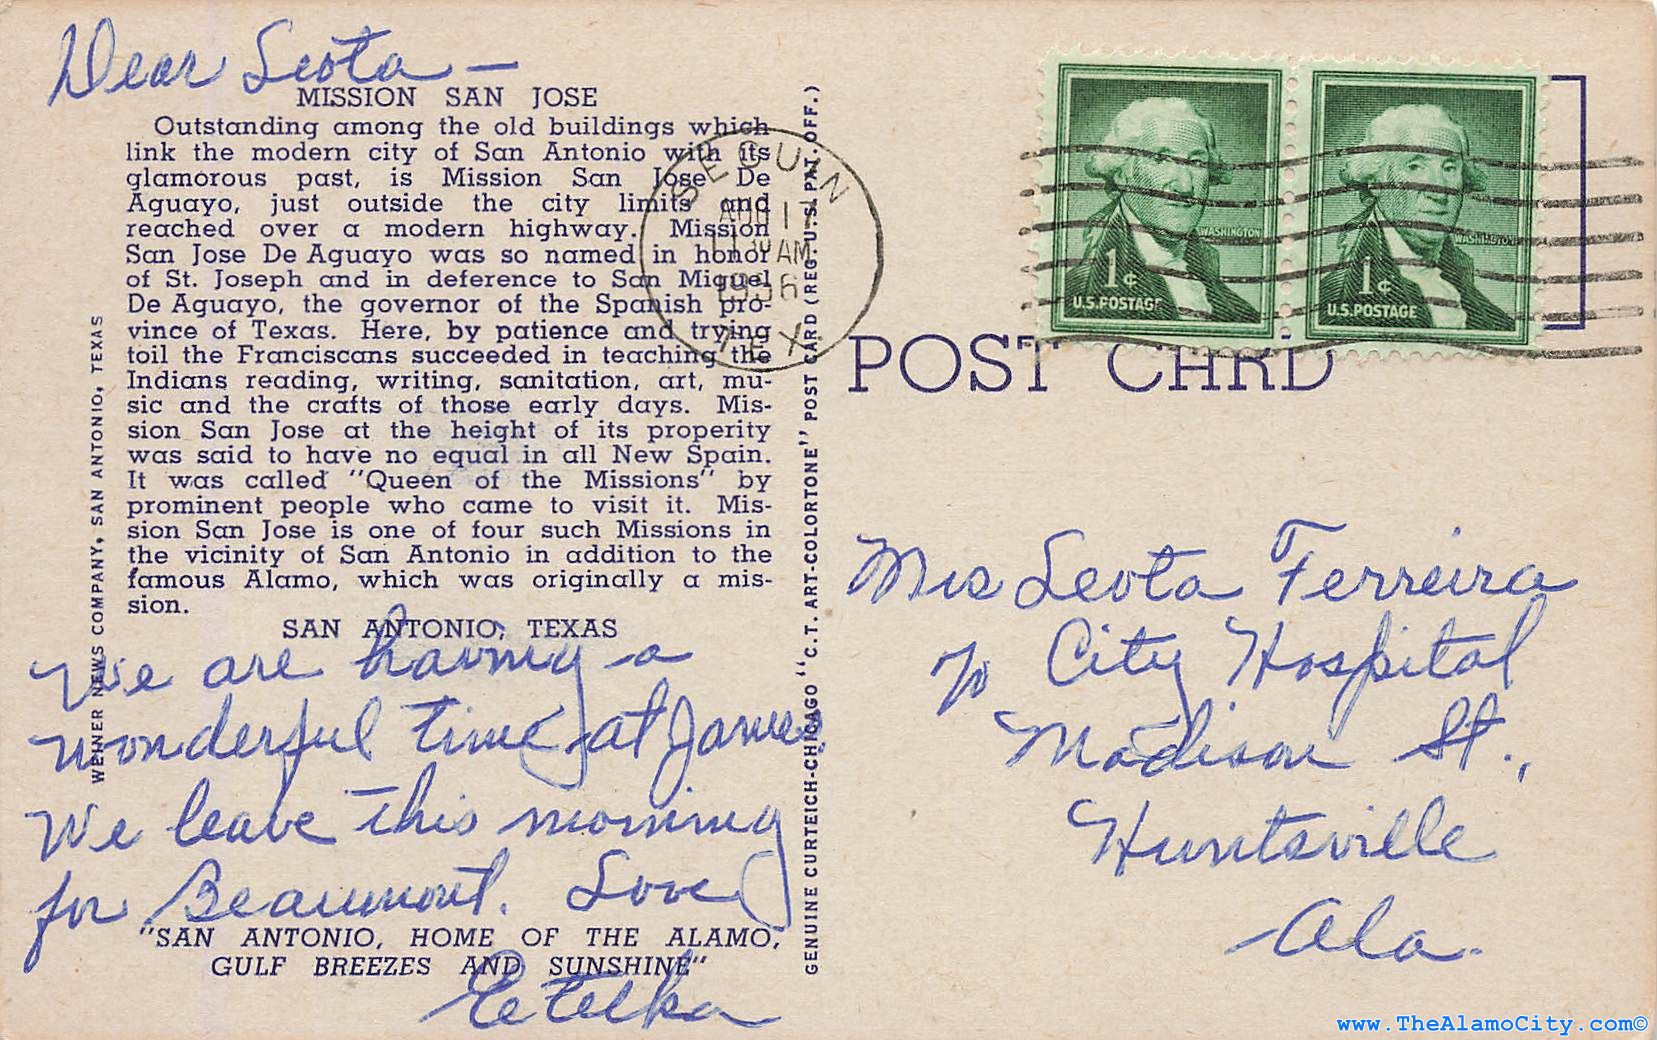 Dear Leota —
MISSION SAN JOSE
Outstanding among the old buildings which
link the modern city of San Antonio with its
glamorous past, is Mission San Jose De
Aguayo, just outside the city limits and
reached over a modern highway. Mission
San Jose De Aguayo was so named in honor
of St. Joseph and in deference to San Miguel
De Aguayo, the governor of the Spanish pro-
vince of Texas. Here, by patience and trying
toil the Franciscans succeeded in teaching the
Indians reading, writing, sanitation, art, mu-
sic and the crafts of those early days. Mis-
sion San Jose at the height of its properity
was said to have no equal in all New Spain.
It was called "Queen of the Missions" by
prominent people who came to visit it. Mis-
sion San Jose is one of four such Missions in
the vicinity of San Antonio in addition to the
famous Alamo, which was originally a mis-
sion.
SAN ANTONIO, TEXAS
We are having a
wonderful time at James
We leave this morning
for Beaumont. Love
"SAN ANTONIO, HOME OF THE ALAMO,
GULF BREEZES AND SUNSHINE"
Etelka
WEINER NEWS COMPANY, SAN ANTONIO, TEXAS
GENUINE CURTEICH-CHICAGO "C.T. ART-COLORTONE" POST CARD (REG. U.S. PAT. OFF.)
SEGUIN
AUG 17
11 30 AM
1956
TEX.
WASHINGTON
1¢
U.S. POSTAGE
WASHINGTON
1¢
U.S. POSTAGE
POST CARD
Mrs Leota Ferreira
℅ City Hospital
Madison St.,
Huntsville
Ala.
www.TheAlamoCity.com©